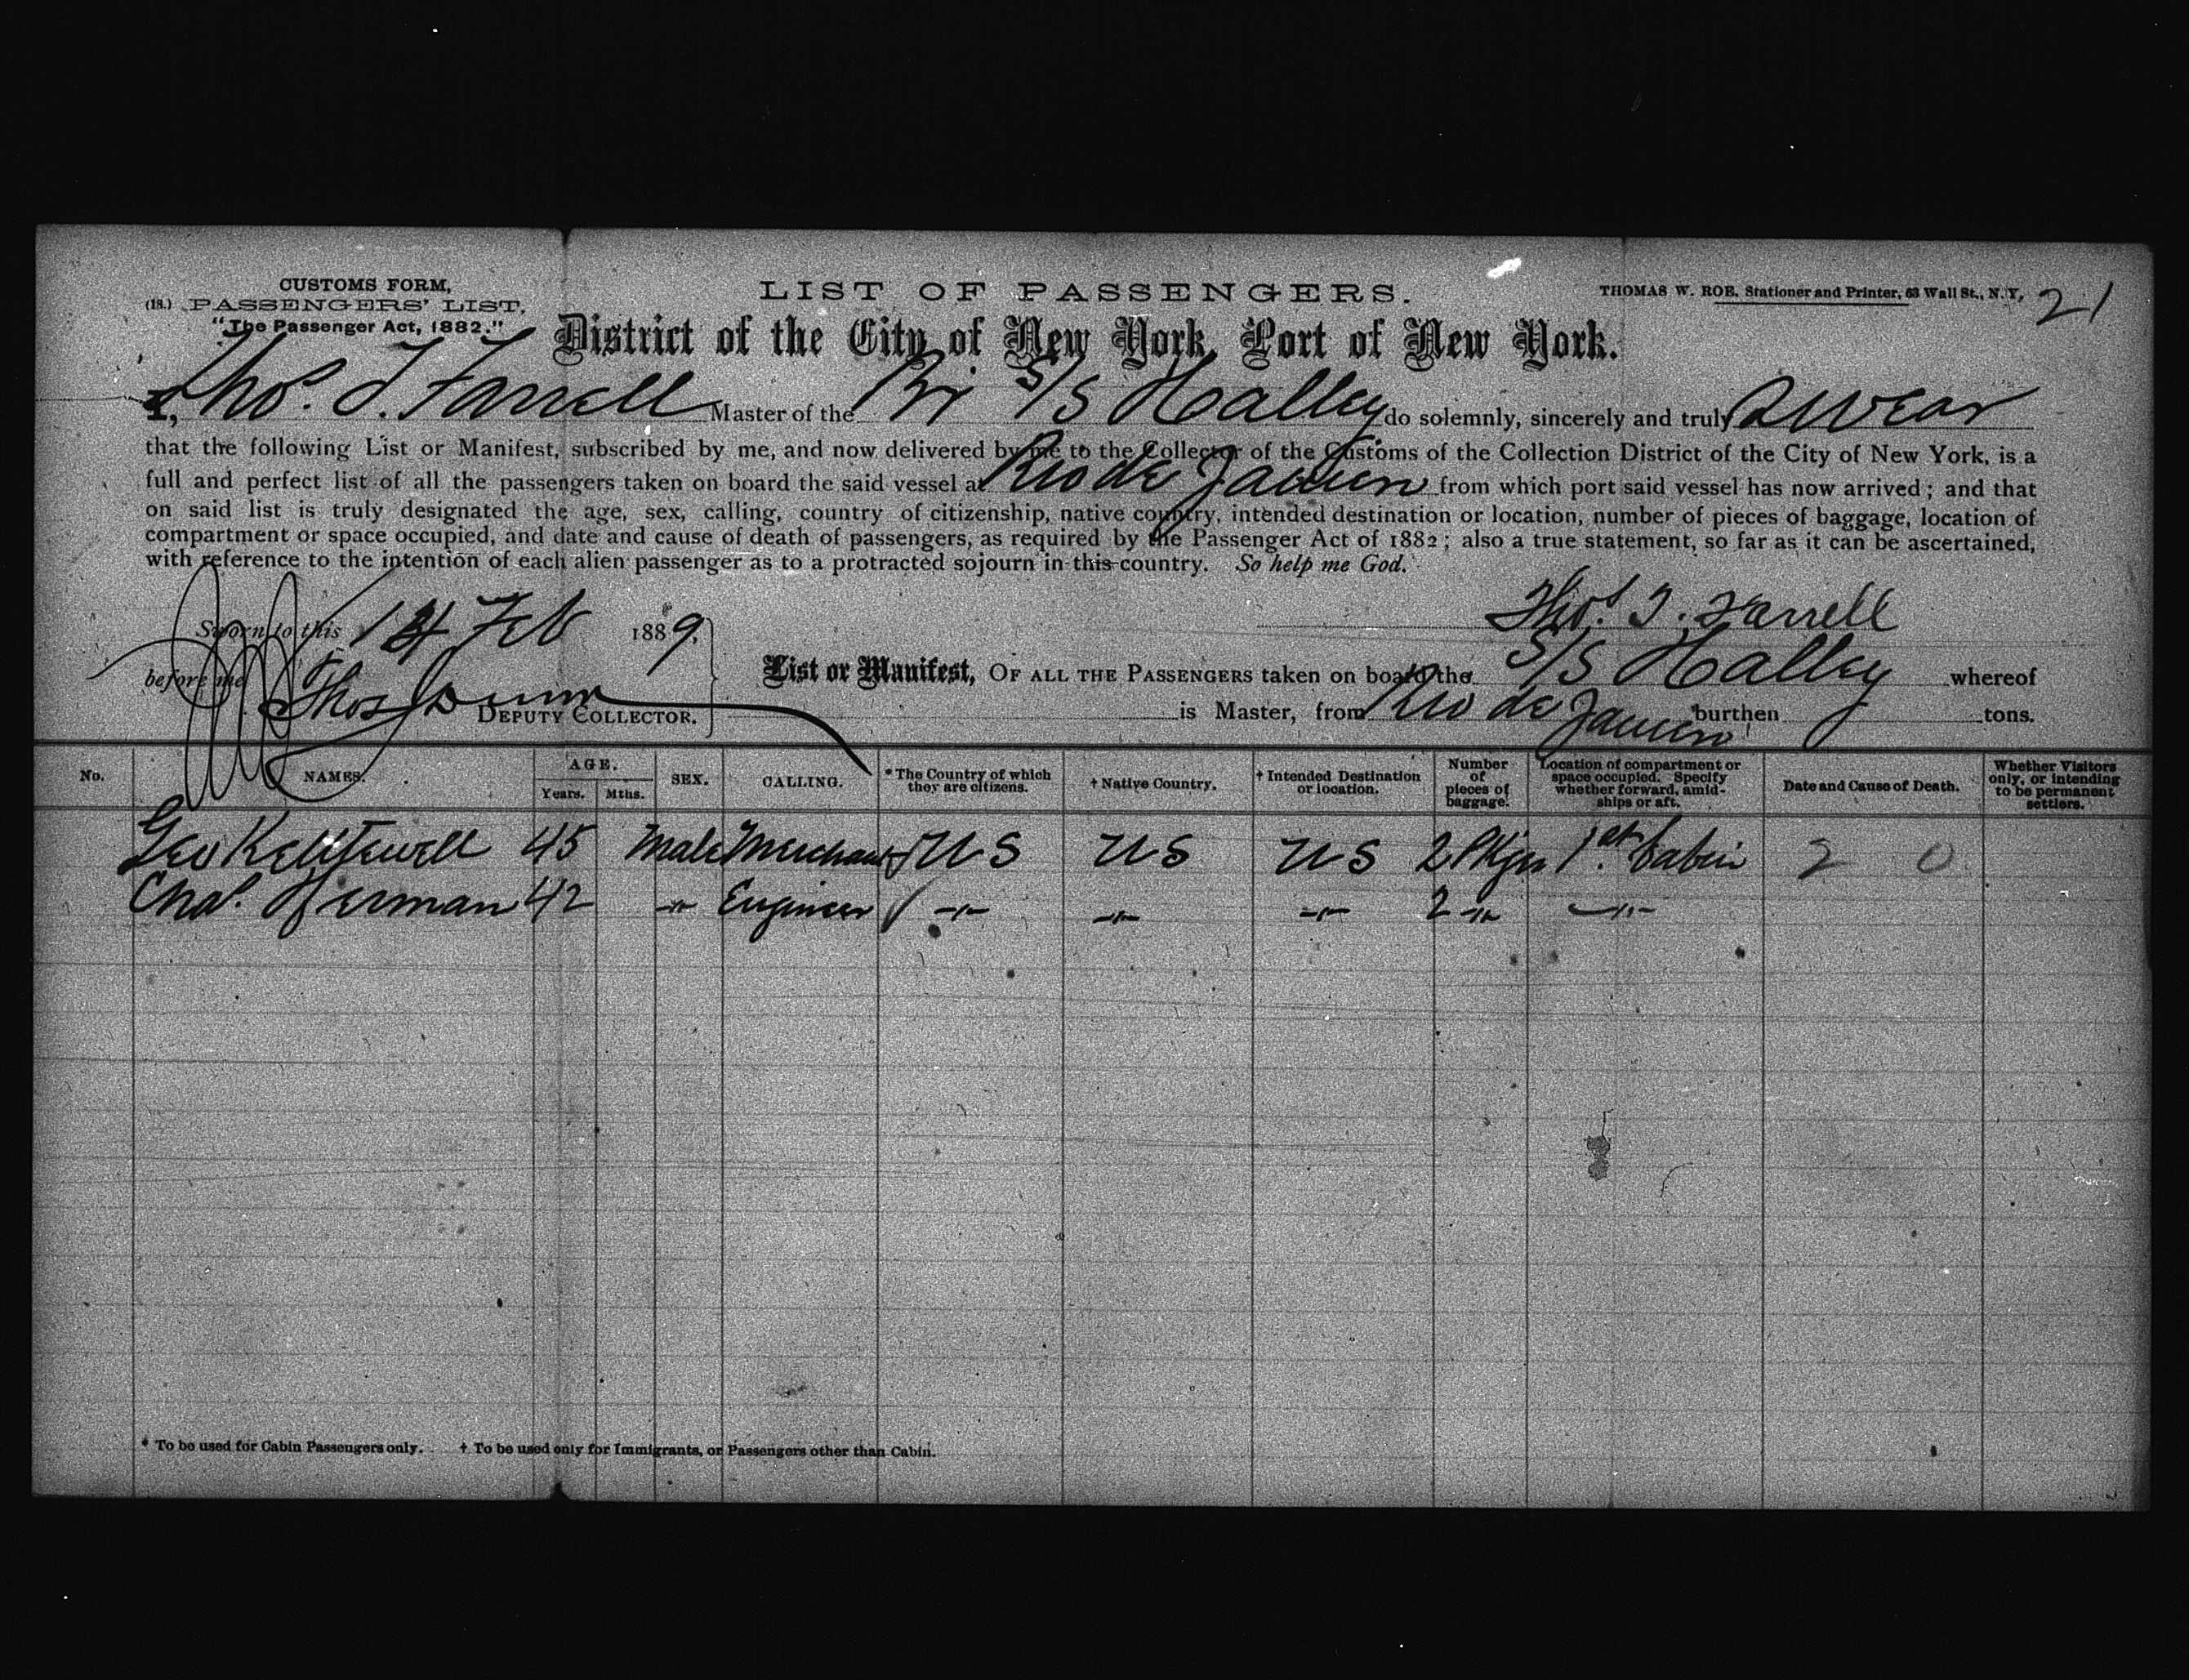 CUSTOMS FORM,
(18.) PASSENGERS' LIST,
"The Passenger Act, 1882."
LIST OF PASSENGERS.
THOMAS W. ROE, Stationer and Printer, 63 Wall St., N. Y.
21
District of the City of New York, Port of New York.
I, Thos. J. Farrell Master of the Br S/S Halley do solemnly, sincerely and truly swear
that the following List or Manifest, subscribed by me, and now delivered by me to the Collector of the Customs of the Collection District of the City of New York, is a
full and perfect list of all the passengers taken on board the said vessel at Rio de Janeiro from which port said vessel has now arrived; and that
on said list is truly designated the age, sex, calling, country of citizenship, native country, intended destination or location, number of pieces of baggage, location of
compartment or space occupied, and date and cause of death of passengers, as required by the Passenger Act of 1882; also a true statement, so far as it can be ascertained,
with reference to the intention of each alien passenger as to a protracted sojourn in this country. So help me God.
Sworn to this 14 Feb 1889.
Thos. J. Farrell
before me Thos Dunn
DEPUTY COLLECTOR.
List or Manifest, OF ALL THE PASSENGERS taken on board the S/S Halley whereof
is Master, from Rio de Janeiro burthen tons.
No. NAMES. AGE. Years. Mths. SEX. CALLING. * The Country of which they are citizens. † Native Country. † Intended Destination or location. Number of pieces of baggage. Location of compartment or space occupied. Specify whether forward, amidships or aft. Date and Cause of Death. Whether Visitors only, or intending to be permanent settlers.
Geo 45 Male Merchant U S U S U S 2 Pkges 1st Cabin 2 0
Chas. Herman 42 -"- Engineer -"- -"- -"- 2 -"- -"-
* To be used for Cabin Passengers only. † To be used only for Immigrants, or Passengers other than Cabin.